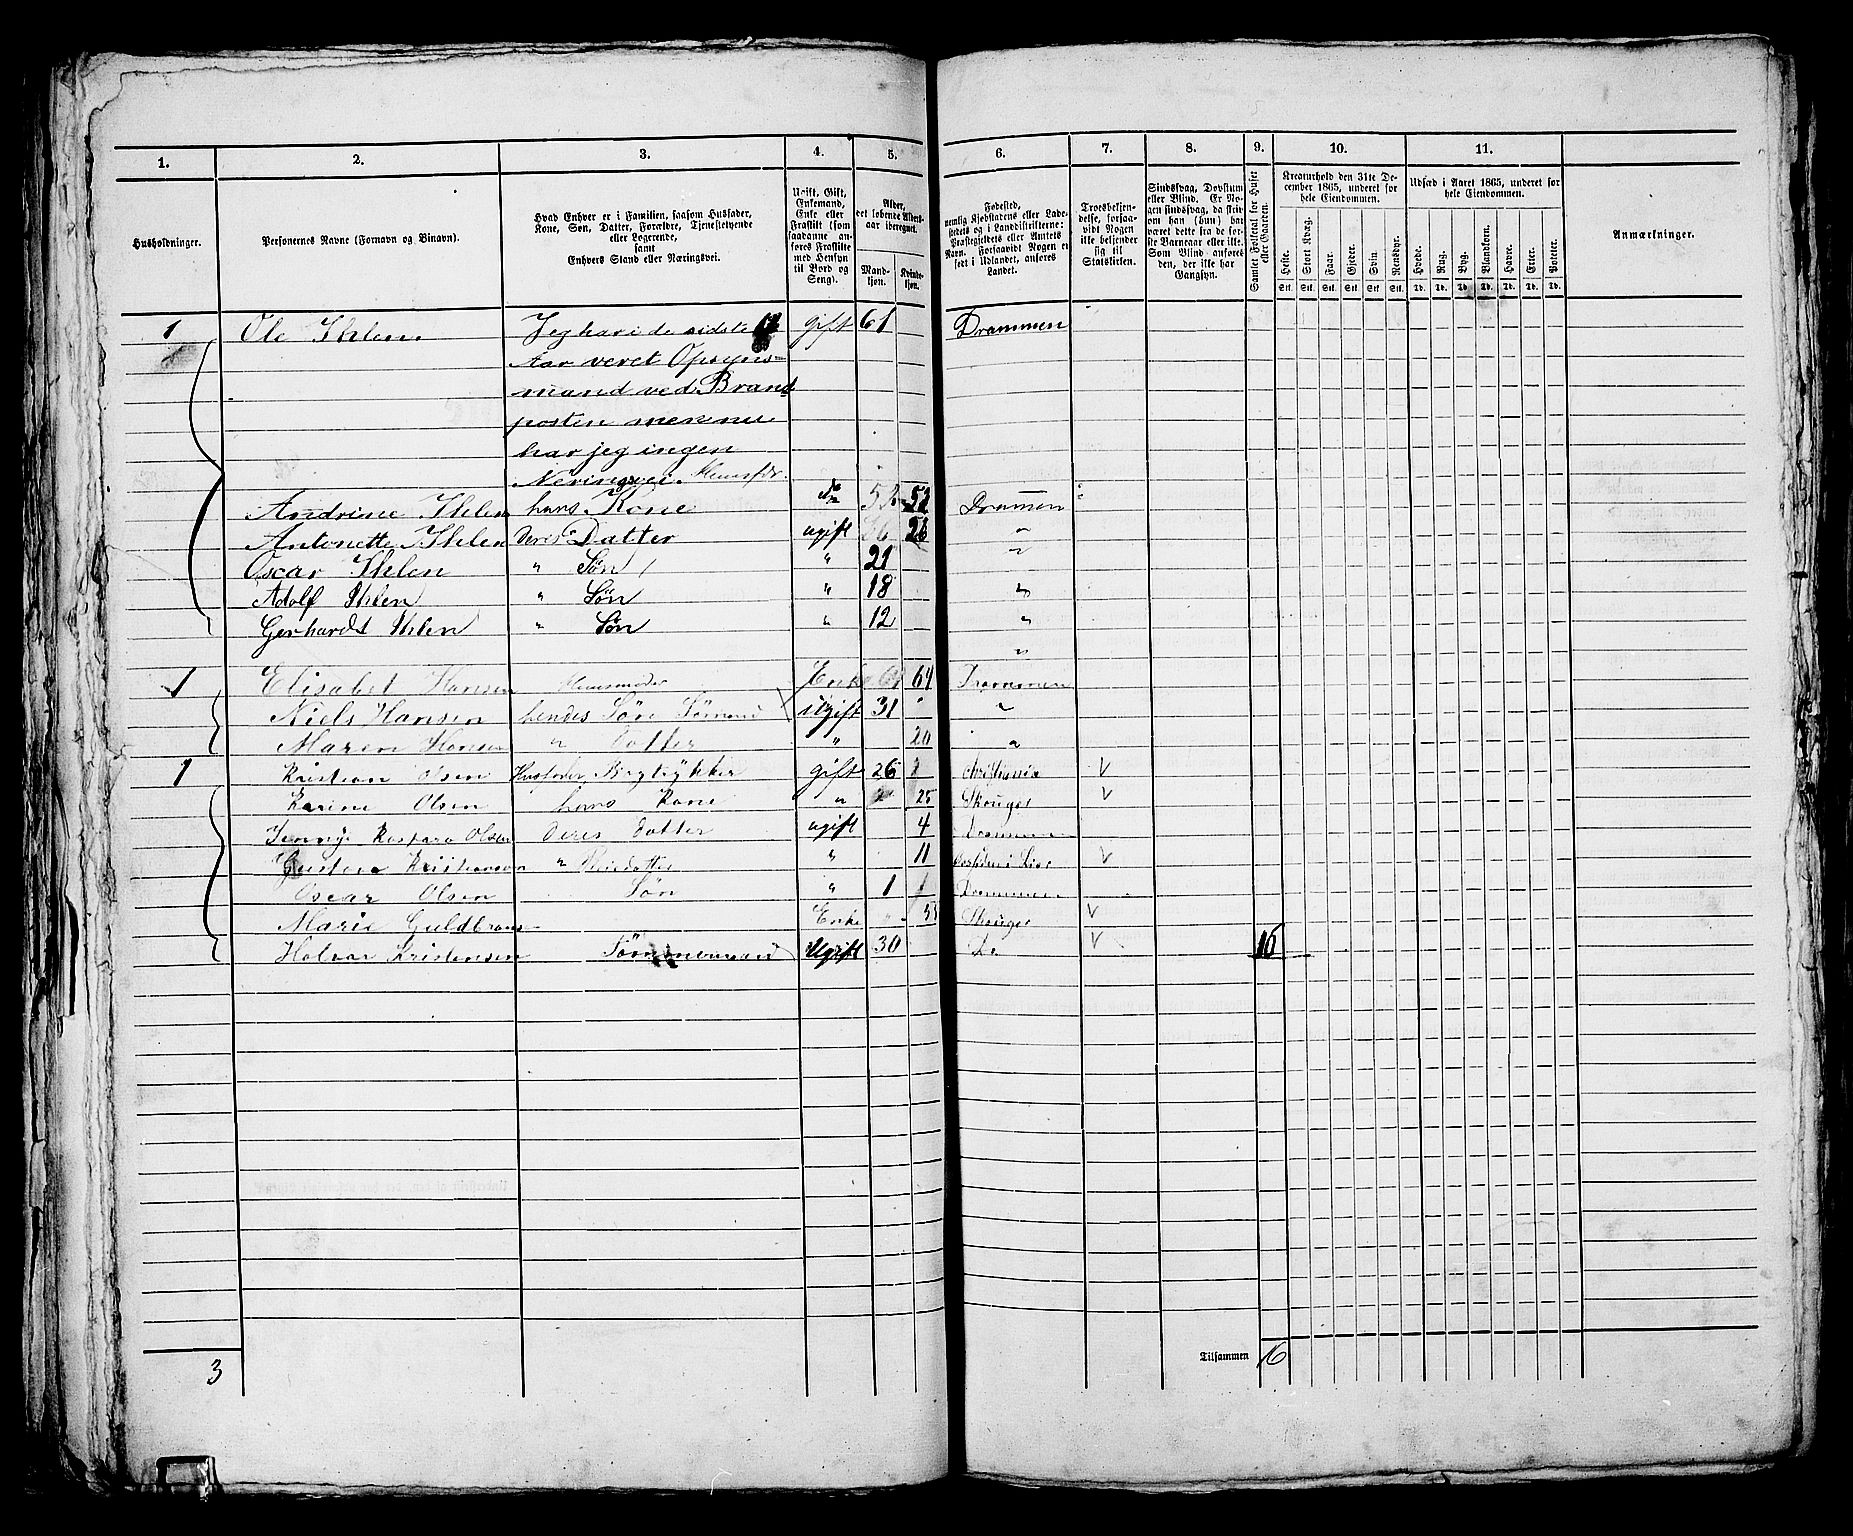 1. 2. 3. 4. 5. 6. 7. 8. 9. 10. 11.
Husholdninger.
Personernes Navne (Fornavn og Binavn).
Hvad Enhver er i Familien, saasom Husfader,
Kone, Søn, Datter, Forældre, Tjenestetyende
eller Logerende,
samt
Enhvers Stand eller Næringsvei.
Ugift, Gift,
Enkemand,
Enke eller
Fraskilt (som
saadanne an-
føres Fraskilte
med Hensyn
til Bord og
Seng).
Alder,
det løbene Alders-
aar iberegnet.
Mand-
kjøn.
Kvinde-
kjøn.
Fødested,
nemlig Kjøbstadens eller Lade-
stedets og i Landdistrikterne:
Præstegjeldets eller Amtets
Navn. Forsaavidt Nogen er
født i Udlandet, anføres
Landet.
Troesbekjen-
delse, forsaa-
vidt Nogen
ikke bekjender
sig til
Statskirken.
Sindssvag, Døvstum
eller Blind. Er No-
gen sindssvag, da skrives
om han (hun) har
været dette fra de før-
ste Barneaar eller ikke.
Som Blind anføres
den, der ikke har
Gangsyn.
Samlet Folketal for Huset
eller Gaarden.
Kreaturhold den 31te De-
cember 1865, underet for
hele Eiendommen.
Heste. Stort Kvæg. Faar. Gjeder. Svin. Rensdyr.
Stk. Stk. Stk. Stk. Stk. Stk.
Udsæd i Aaret 1865, underet for
hele Eiendommen.
Hvede. Rug. Byg. Blandkorn. Havre. Erter. Poteter.
Td. Td. Td. Td. Td. Td. Td.
Anmærkninger.
1 Ole Ihlen. Jeg har i de sidste gift 61 Drammen
Aar veret Opsyns=
mand ved Brand
posten men nu
har jeg ingen
Neringsvei. Huusfdr.
Andrine Ihlen hans Kone do 52 Drammen
Antonette Ihlen Deris Datter ugift 26 "
Oscar Ihlen " Søn " 21 "
Adolf Ihlen " Søn " 18 "
Gerhardt Ihlen " Søn " 12 "
"
1 Elisabet Hansen Huusmoder Enke 64 Drammen
Niels Hansen hendes Søn Sømand ugift 31 " "
Maren Hansen " Datter " 20 "
1 Kristian Olsen Husfader gift 26 Christiania V
Karine Olsen hans Kone " 25 Skouger V
Jennyi Kaspara Olsen Deres Datter ugift 4 Drammen
Kristiansen " " 11 Lier V
Oscar Olsen Søn " 1 Drammen
Marie Guldbrans- Enke " 53 Skouger V
Halvar Kristensen Tømmermand Ugift 30 Do V 16
3
Tilsammen 16